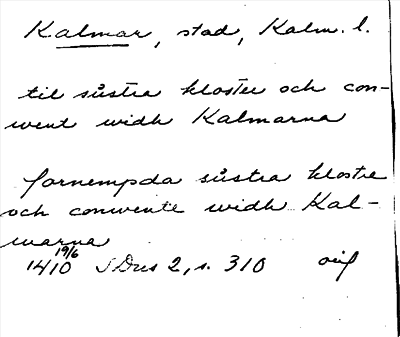 Kalmar, stad, Kalm. l.
til sůstra kloster och con-
went widh Kalmarna
fornempda sůstra klostre
och conwente widh Kal-
marna
1410 19/6 SDns 2, s. 310 orig